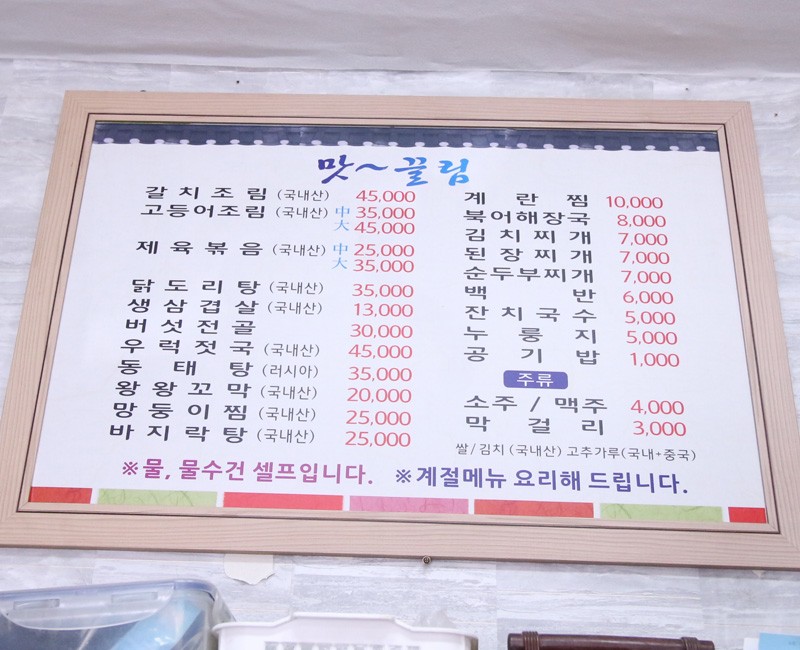 맛~끌림
갈치조림 (국내산) 45,000
고등어조림 (국내산) 中 35,000
大 45,000
제육볶음 (국내산) 中 25,000
大 35,000
닭도리탕 (국내산) 35,000
생삼겹살 (국내산) 13,000
버섯전골 30,000
우럭젓국 (국내산) 45,000
동태탕 (러시아) 35,000
왕왕꼬막 (국내산) 20,000
망둥이찜 (국내산) 25,000
바지락탕 (국내산) 25,000
계란찜 10,000
북어해장국 8,000
김치찌개 7,000
된장찌개 7,000
순두부찌개 7,000
백반 6,000
잔치국수 5,000
누룽지 5,000
공기밥 1,000
주류
소주 / 맥주 4,000
막걸리 3,000
쌀/김치 (국내산) 고추가루(국내+중국)
※물, 물수건 셀프입니다. ※계절메뉴 요리해 드립니다.